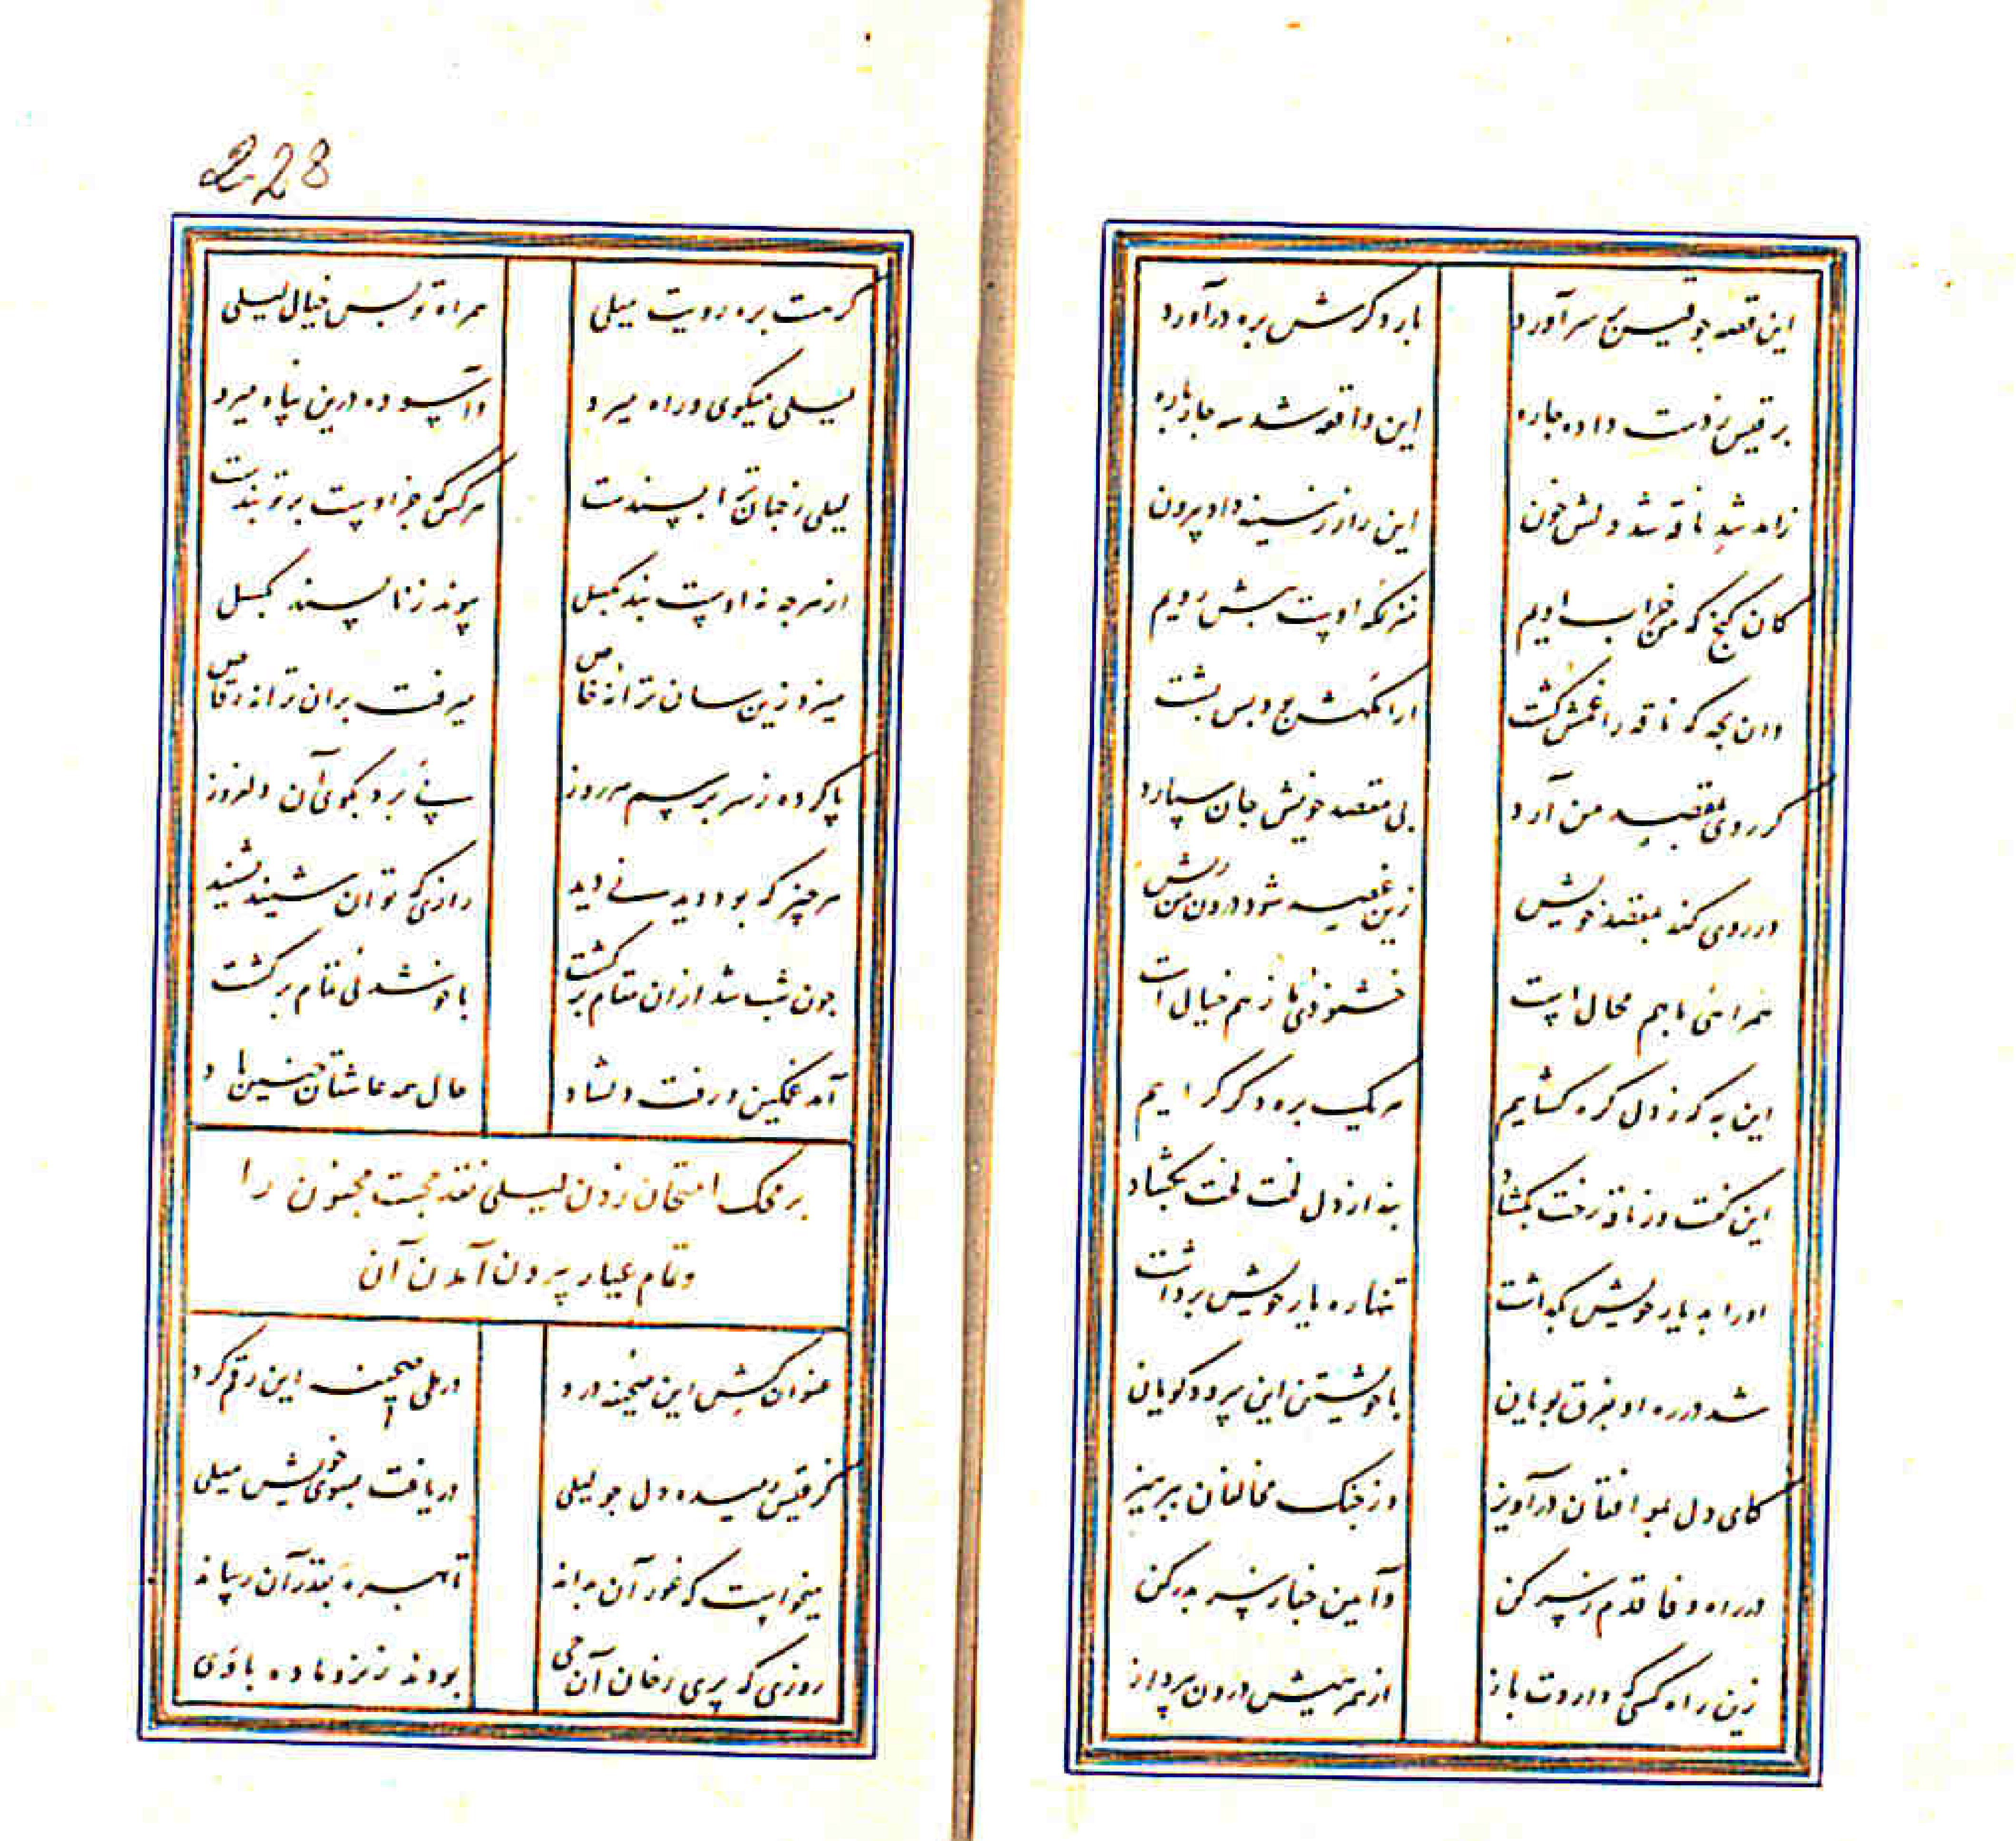 این قصه چو قیس بر سر آورد
بار دگرش بره درآورد
بر قیس ز دست داده چاره
این واقعه شد سه چار باره
زاندیشه ناقه شد دلش خون
این راز ز سینه داد بیرون
کان گنج که من خراب اویم
منزلگه اوست پیش رویم
وان بچه که ناقه را غمش کشت
آرامگهش حی و پس پشت
گر روی بمقصد من آرد
بی مقصد خویش جان سپارد
ور روی کند بمقصد خویش
زین غصه شود درون من ریش
همراهی ما بهم محال است
خشنودی ما ز هم خیال است
این به که ز دل گره گشایم
هر یک بره دگر گرایم
این گفت و ز ناقه رخت بگشاد
بند از دل لخت لخت بگشاد
او را به دیار خویش بگذاشت
تنها ره یار خویش برداشت
شد در ره او بفرق پویان
با خویشتن این سرود گویان
کای دل بموافقان درآویز
وز جنگ مخالفان بپرهیز
در راه وفا قدم ز سر کن
وآیین جفا ز سر بدر کن
زین راه کسی که داردت باز
از همرهیش درون بپرداز
228
گر هست بره رویت میلی
همراه تو بس خیال لیلی
لیلی میگوی و راه میرو
وآسوده درین پناه میرو
لیلی ز جهان ترا پسندست
هر کس که جز اوست بر تو بندست
از هر چه نه اوست بند بگسل
پیوند ز ناپسند بگسل
میزد زین سان ترانه خاص
میرفت بران ترانه رقاص
پا کرده ز سر برسم هر روز
پی برد بکوی آن دلفروز
هر چیز که بود دیدنی دید
رازی که توان شنید بشنید
چون شب شد ازان مقام برگشت
با خوشدلی تمام برگشت
آمد غمگین و رفت دلشاد
حال همه عاشقان چنین باد
بر محک امتحان زدن لیلی نقد محبت مجنون را
و تمام عیار بیرون آمدن آن
عنوان کش این صحیفه درد
در طی صحیفه این رقم کرد
کز قیس رمیده دل چو لیلی
دریافت بسوی خویش میلی
میخواست که غور آن بداند
تا بهره بقدر آن رساند
روزی که پری رخان آن حی
بودند ز نزد ماده با وی